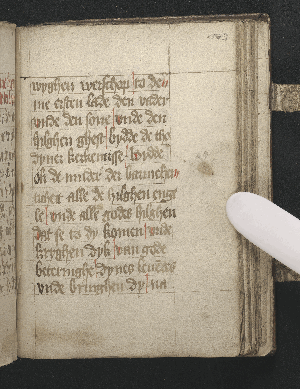 wyghen werschep to de
me ersten lade den vader
vnde den sone vnde den
hilghen ghest bydde de tho
dyner kerkemisse lovede
ok de moder der barmher
alle de hilghen enge
le vnde alle godes hilghen
dat se to dy komen vnde
kryghen dyk van gode
beteringhe dynes levendes
vnde bringhen dy na